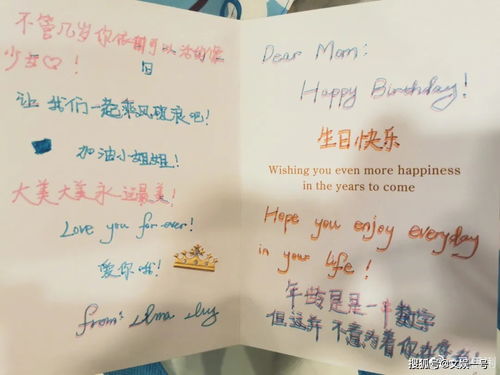 不管几岁你依旧可以活的像
少女♡!
让我们一起乘风破浪吧!
加油小姐姐!
大美大美永远最美!
Love you for ever!
爱你哦!
from:
Dear Mom:
Happy Birthday!
生日快乐
Wishing you even more happiness
in the years to come
Hope you enjoy everyday
in your life!
年龄是是一串数字
但这并不意为着你
搜狐号@文娱一号